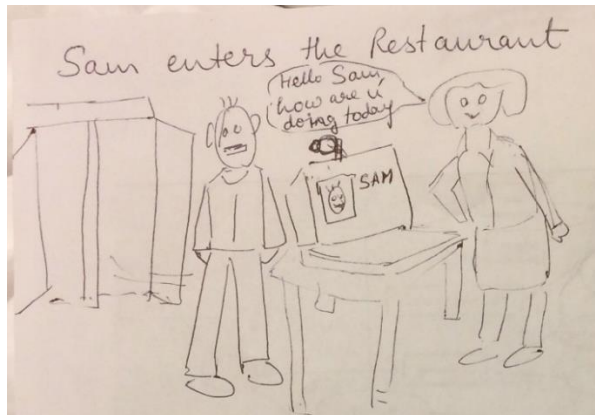 Sam enters the Restaurant
Hello Sam,
how are u
doing today
SAM